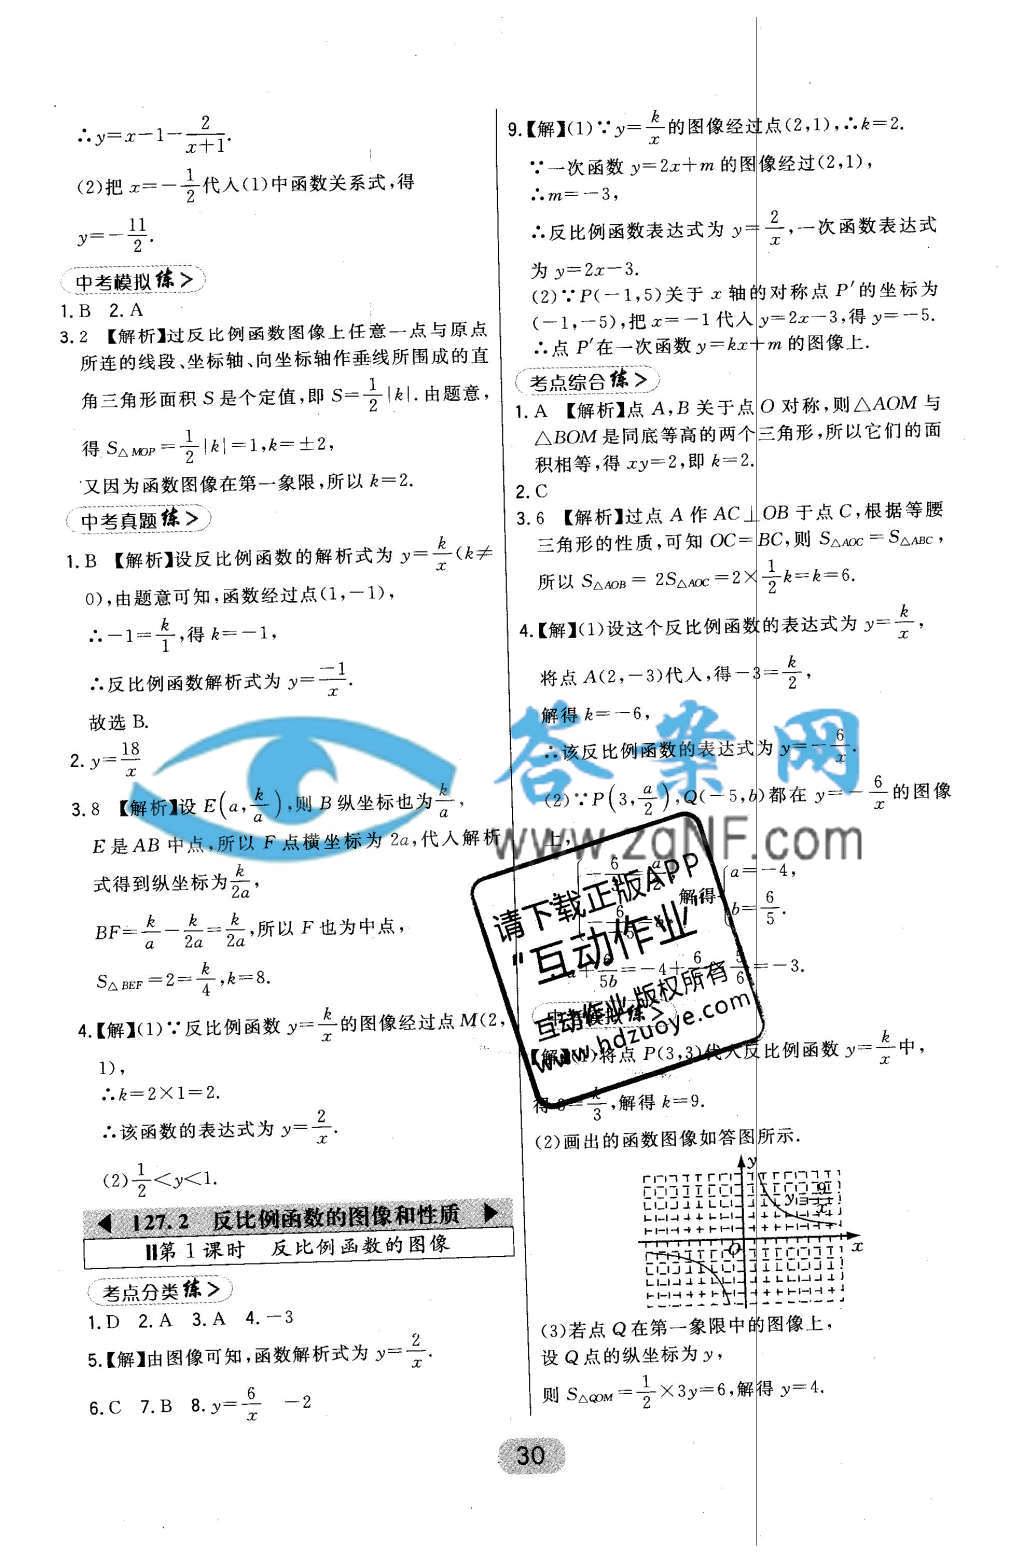 ∴y=x-1-2/(x+1).
(2)把 x=-1/2代入(1)中函数关系式,得
y=-11/2.
中考模拟练>
1. B 2. A
3. 2 【解析】过反比例函数图像上任意一点与原点
所连的线段、坐标轴、向坐标轴作垂线所围成的直
角三角形面积 S 是个定值,即 S=1/2|k|.由题意,
得 S△MOP=1/2|k|=1,k=±2,
又因为函数图像在第一象限,所以 k=2.
中考真题练>
1. B 【解析】设反比例函数的解析式为 y=k/x(k≠
0),由题意可知,函数经过点(1,-1),
∴-1=k/1,得 k=-1,
∴反比例函数解析式为 y=-1/x.
故选 B.
2. y=18/x
3. 8 【解析】设 E(a,k/a),则 B 纵坐标也为k/a,
E 是 AB 中点,所以 F 点横坐标为 2a,代入解析
式得到纵坐标为k/2a,
BF=k/a-k/2a=k/2a,所以 F 也为中点,
S△BEF=2=k/4,k=8.
4.【解】(1)∵反比例函数 y=k/x的图像经过点 M(2,
1),
∴k=2×1=2.
∴该函数的表达式为 y=2/x.
(2)1/2<y<1.
127.2 反比例函数的图像和性质
第 1 课时 反比例函数的图像
考点分类练>
1. D 2. A 3. A 4. -3
5.【解】由图像可知,函数解析式为 y=2/x.
6. C 7. B 8. y=6/x -2
9.【解】(1)∵y=k/x的图像经过点(2,1),∴k=2.
∵一次函数 y=2x+m 的图像经过(2,1),
∴m=-3,
∴反比例函数表达式为 y=2/x,一次函数表达式
为 y=2x-3.
(2)∵P(-1,5)关于 x 轴的对称点 P′的坐标为
(-1,-5),把 x=-1代入 y=2x-3,得 y=-5.
∴点 P′在一次函数 y=kx+m 的图像上.
考点综合练>
1. A 【解析】点 A,B 关于点 O 对称,则△AOM 与
△BOM 是同底等高的两个三角形,所以它们的面
积相等,得 xy=2,即 k=2.
2. C
3. 6 【解析】过点 A 作 AC⊥OB 于点 C,根据等腰
三角形的性质,可知 OC=BC,则 S△AOC=S△ABC,
所以 S△AOB=2S△AOC=2×1/2k=k=6.
4.【解】(1)设这个反比例函数的表达式为 y=k/x,
将点 A(2,-3)代入,得-3=k/2,
解得 k=-6,
∴该反比例函数的表达式为 y=-6/x.
(2)∵P(3,a/2),Q(-5,b)都在 y=-6/x的图像
上,
解得 a=-4,
b=6/5.
=-4+ =-3.
模拟练>
【解】(1)将点 P(3,3)代入反比例函数 y=k/x中,
得3=k/3,解得 k=9.
(2)画出的函数图像如答图所示.
y
y=9/x
O
x
(3)若点 Q 在第一象限中的图像上,
设 Q 点的纵坐标为 y,
则 S△QOM=1/2×3y=6,解得 y=4.
30
答案网
www.zqNF.com
请下载正版APP
"互动作业"
互动作业 版权所有
www.hdzuoye.com